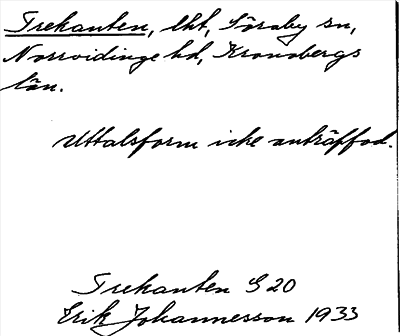 Trekanten, lht, Söraby sn,
Norrvidinge hd, Kronobergs
län.
Uttalsform icke anträffad.
Trekanten G 20
Erik Johannesson 1933